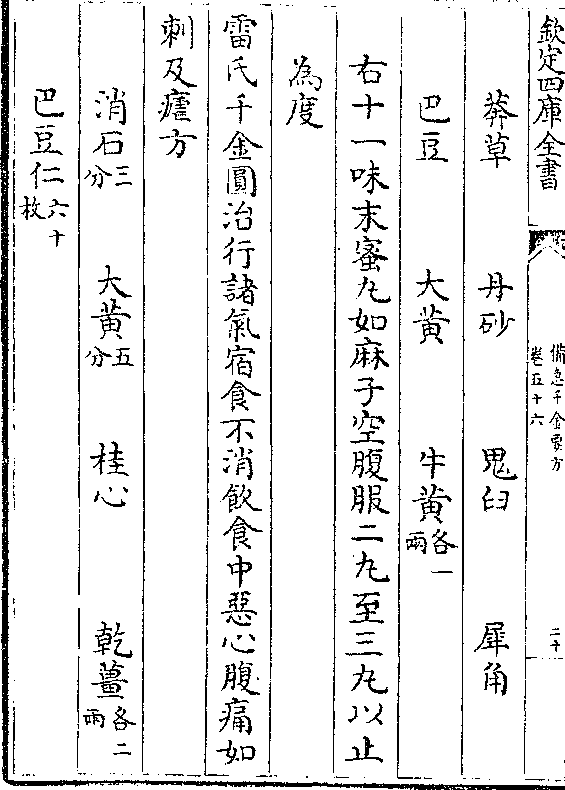 欽定四庫全書
備急千金要方
卷五十六
二十
莽草 丹砂 鬼臼 犀角
巴豆 大黄 牛黄各一兩
右十一味末蜜丸如麻子空腹服二丸至三丸以止
為度
雷氏千金圓治行諸氣宿食不消飲食中惡心腹痛如
刺及瘧方
消石三分 大黄五分 桂心 乾薑各二兩
巴豆仁六十枚